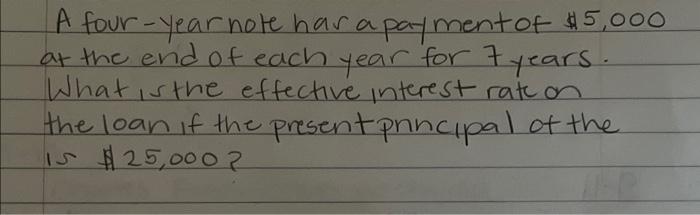 A four-year note has a payment of $5,000
at the end of each year for 7 years.
What is the effective interest rate on
the loan if the present principal of the
is $25,000?